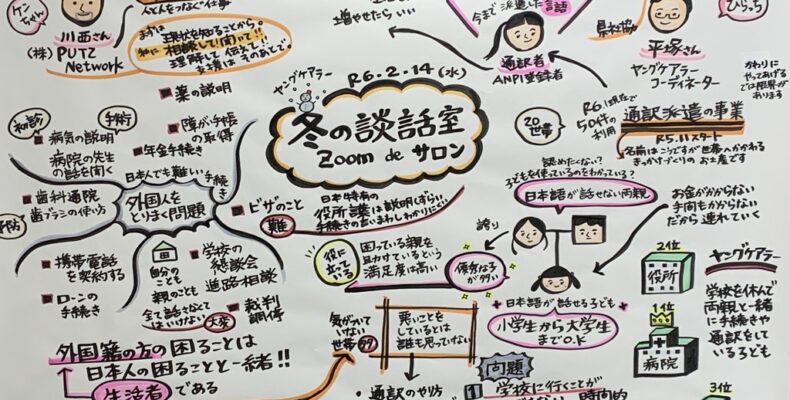 ケンちゃん
川西さん
(株) PUTZ
Network
まずは
現状を知ることから。
私に相談して!聞いて!!
理解して 伝えて!!
支援は そのあとで。
増やせたら いい
今まで派遣した 言語
通訳者
ANPI登録者
県社協
ひらっち
平塚さん
ヤングケアラー
コーディネーター
かわりに
やってあげる
では限界が
あります
ヤングケアラー
R6.2.14(水)
冬の談話室
Zoom de サロン
20世帯
R6.1現在で
50件の
利用
通訳派遣の事業
R5.11 スタート
名前はこうですが世帯へかかわる
きっかけづくりの お土産です
薬の説明
初診
手術
病気の説明
病院の先生
の話を聞く
障がい手帳
の取得
年金手続き
日本人でも難しい手続き
外国人を
とりまく問題
歯科通院
歯ブラシの使い方
予防
ビザのこと
難
日本特有の
役所言葉は説明しずらい
手続きの言いまわしわかりにくい
携帯電話
を契約する
ローンの
手続き
自分の
こども
親のこども
全て話さなくて
はいけない
大変
学校の
懇談会
進路相談
裁判
調停
役に
立ってる
困っている親を
助けているという
満足度は高い
優秀な子
が多い
誇り
認めたくない?
子どもを使っているのをわかっている?
日本語が話せない両親
お金がかからない
手間もかからない
だから 連れていく
日本語が話せる子ども
小学生から大学生
までO.K
2位
役所
1位
病院
3位
ヤングケアラー
学校を休んで
両親と一緒
に手続きや
通訳をして
いる子ども
外国籍の方の困ることは
日本人の困ることと一緒!!
生活者である
気がついて
いない
世帯 多
悪いことを
しているとは
誰も思っていない
・通訳のやり方
問題
1 学校に行くことが
できない 時間的